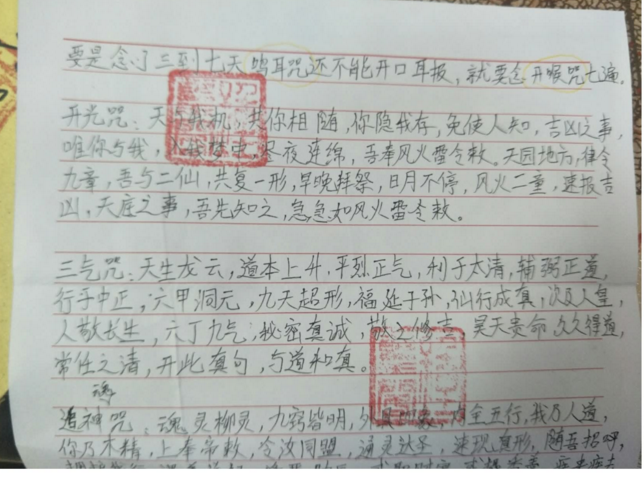 要是念了三到七天鸣耳咒还不能开口耳报，就要念开喉咒七遍。
开光咒：天与我机，共你相随，你隐我存，免使人知，吉凶之事，
唯你与我，日夜连绵，吾奉风火雷令敕。天园地方，律令
九章，吾与二仙，共复一形，早晚拜祭，日月不停，风火二童，速报吉
凶，天庭之事，吾先知之，急急如风火雷令敕。
三气咒：天生龙云，道本上升，平烈正气，利于太清，辅弼正道，
行于中正，六甲洞元，九天超形，福延子孙，仙行成真，次及人皇，
人敬长生，六丁九气，秘密真诚，敬之修吉，昊天贵命，久久得道，
常住之清，开此真句，与道和真。
追魂神咒：魂灵柳灵，九窍皆明，五行，我乃人道，
你乃木精，上奉帝敕，令汝同盟，通灵，速现真形，随吾招呼，